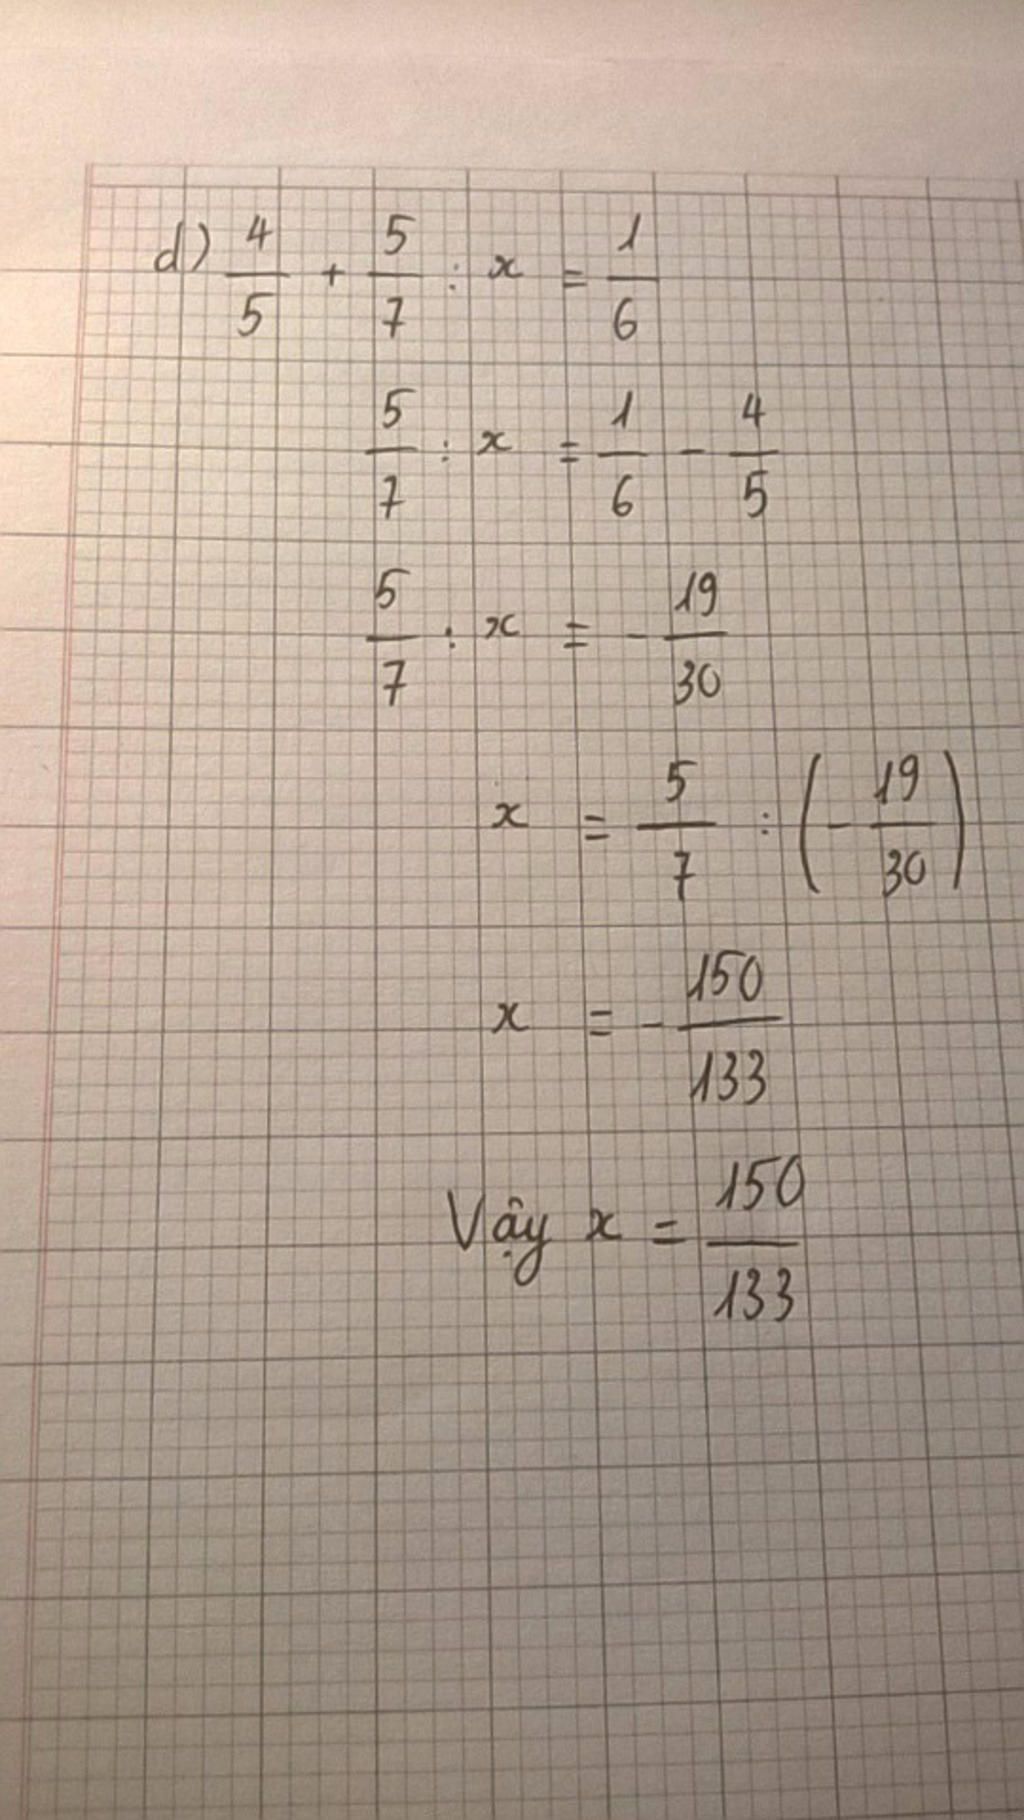 d) 4/5 + 5/7 : x = 1/6
5/7 : x = 1/6 - 4/5
5/7 : x = - 19/30
x = 5/7 : (- 19/30)
x = - 150/133
Vậy x = 150/133